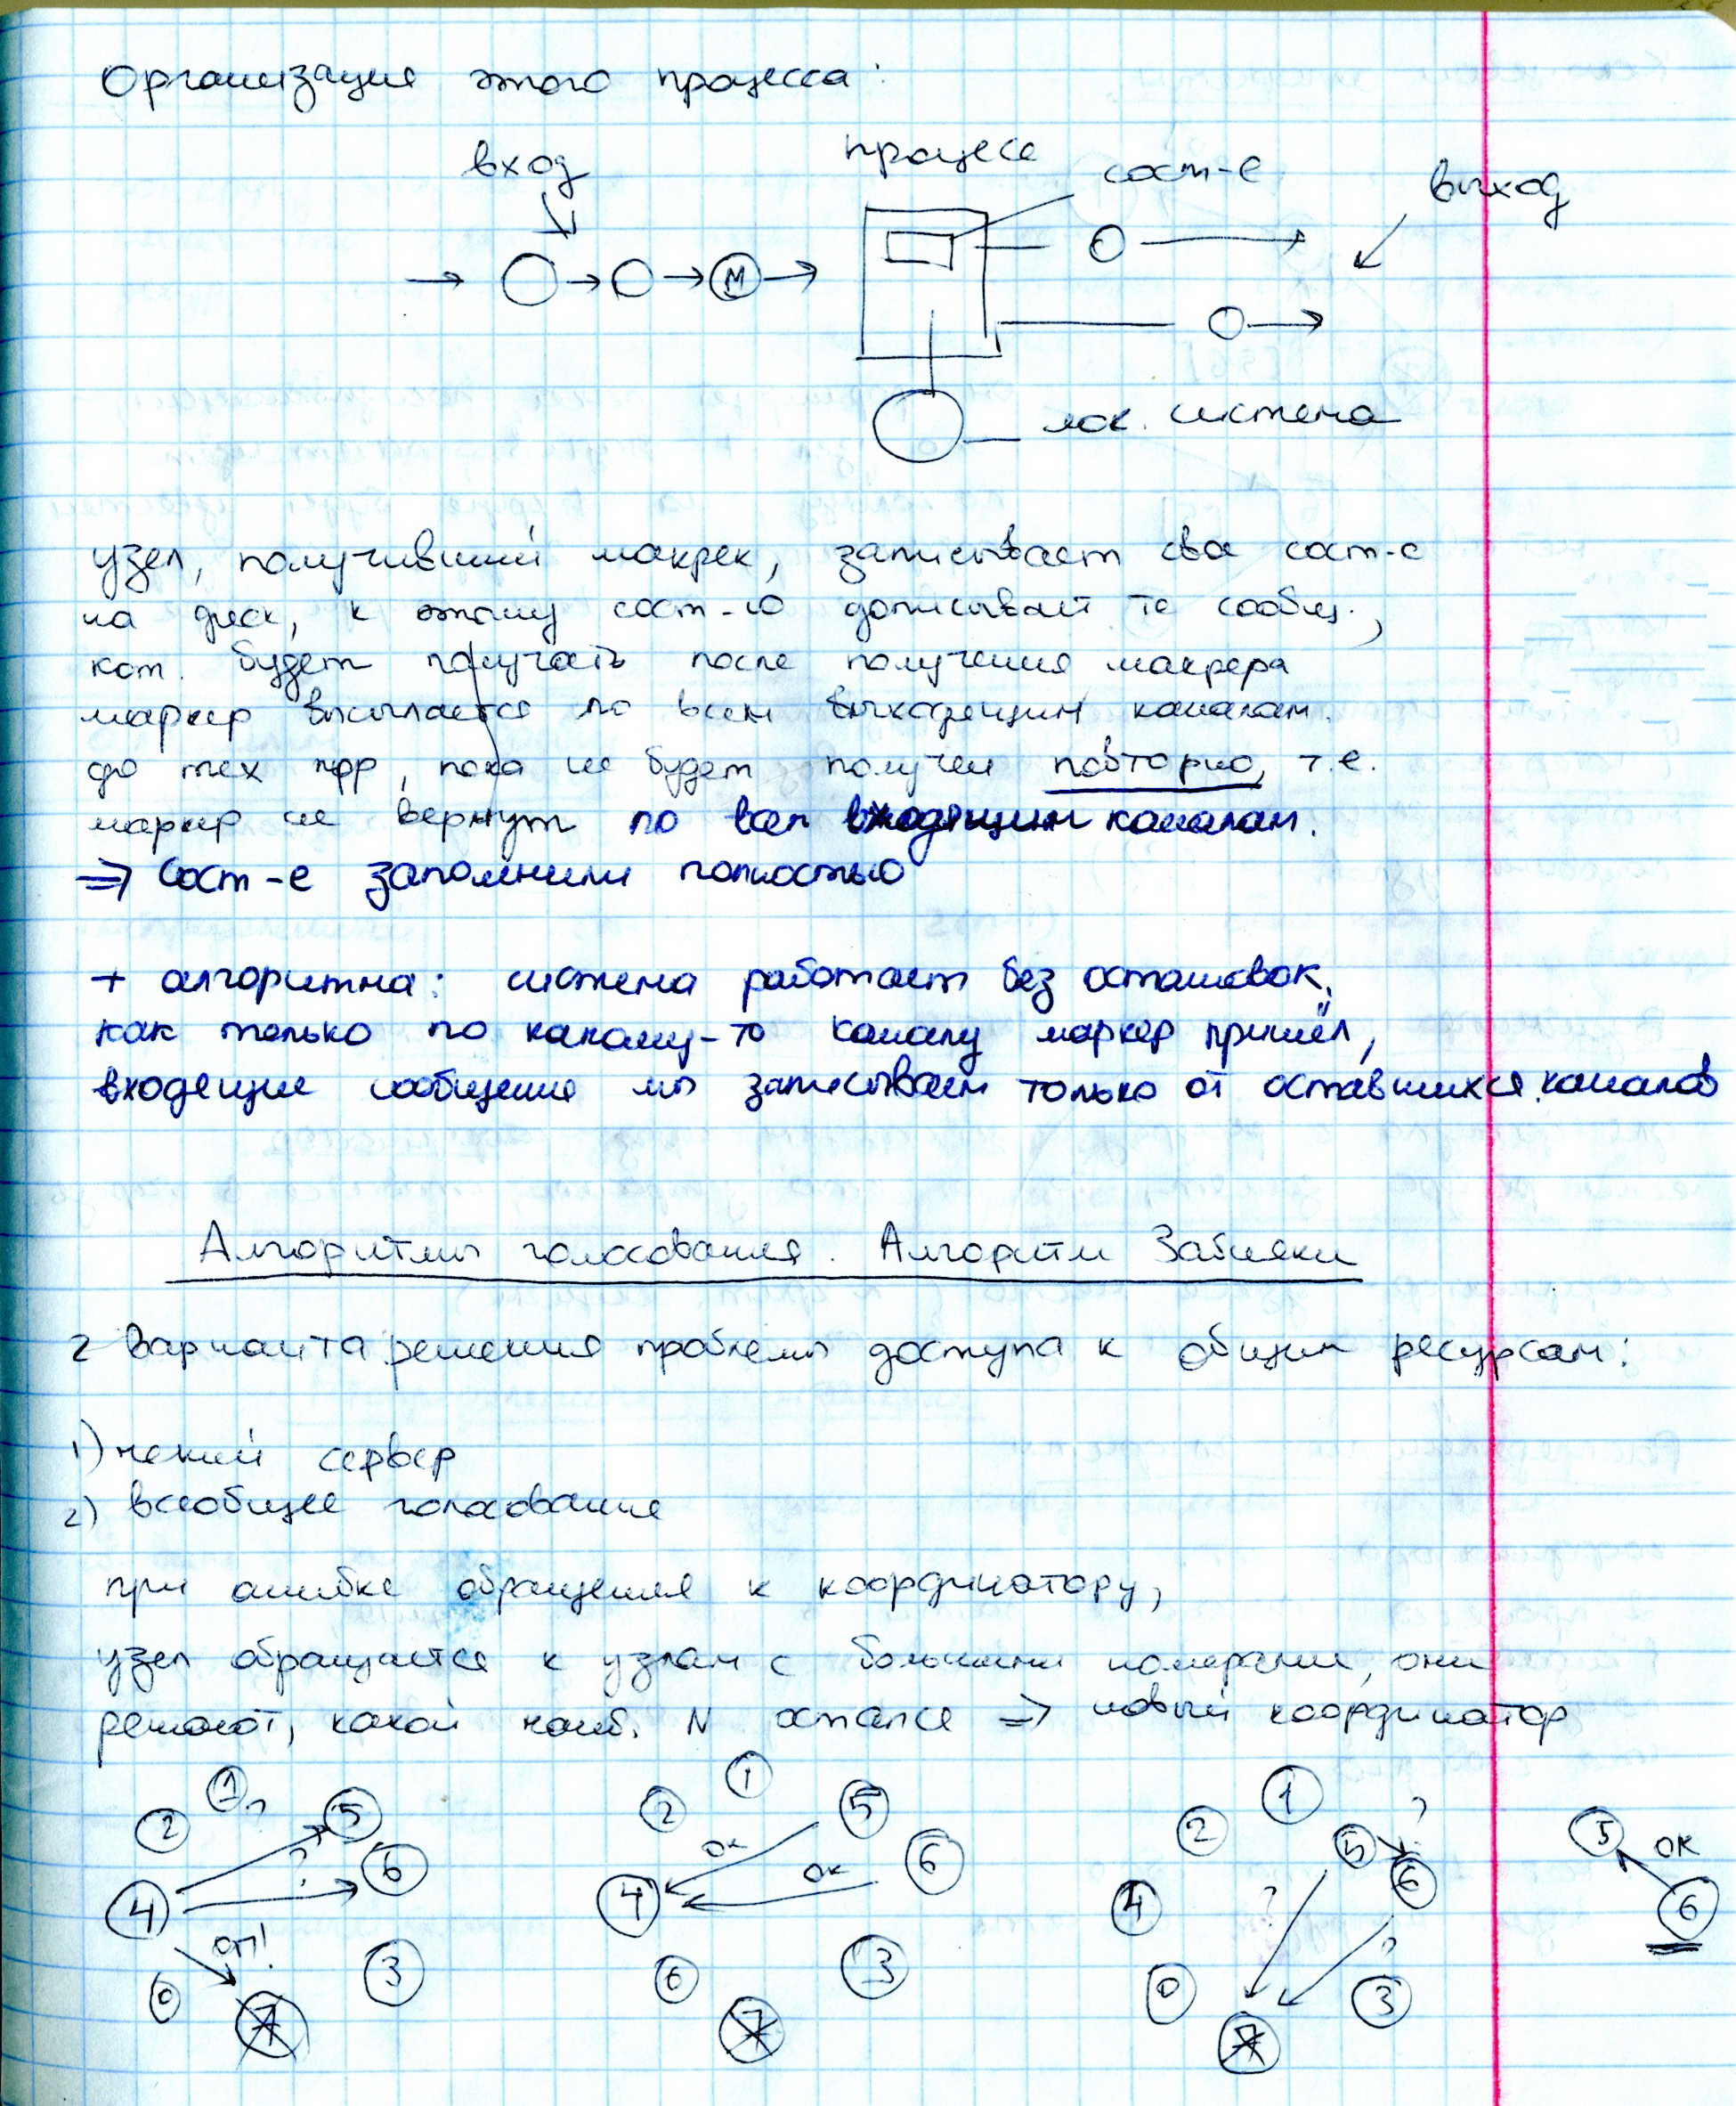 Организация этого процесса:
вход
процесс
сост-е
выход
М
лок. система
узел, получивший макрек, записывает свое сост-е
на диск, к этому сост-ю дописывает те сообщ.,
кот. будет получать после получения макрера
маркер высылается по всем выходящим каналам.
до тех пор, пока не будет получен повторно, т.е.
маркер не вернут по всем входящим каналам.
⇒ Сост-е запомнили полностью
+ алгоритма: система работает без остановок,
как только по какому-то каналу маркер пришёл,
входящие сообщения мы записываем только от оставшихся каналов
Алгоритмы голосования. Алгоритм Забияки
2 варианта решения проблемы доступа к общим ресурсам:
1) некий сервер
2) всеобщее голосование
при ошибке обращения к координатору,
узел обращается к узлам с большими номерами, они
решают, какой наиб. N остался ⇒ новый координатор
1 ? 2 5 ? 6 4 оп! 0 7 3
1 2 5 ок ок 6 4 6 7 3
1 2 5 ? 6 4 ? ? 0 7 3
5 ок 6